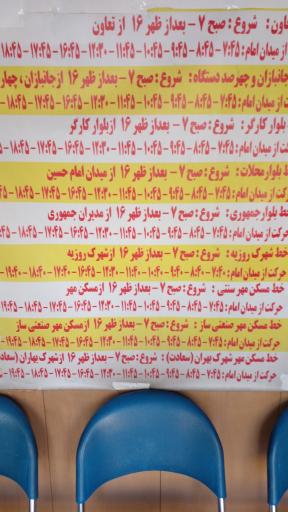 تعاون : شروع : صبح ۷ - بعداز ظهر ۱۶ از تعاون
از میدان امام : ۷:۴۵ - ۸:۴۵ - ۹:۴۵ - ۱۰:۴۵ - ۱۱:۴۵ - ۱۲:۳۰ - ۱۶:۴۵ - ۱۷:۴۵ - ۱۸:۴۵
جانبازان و چهرصد دستگاه : شروع : صبح ۷ - بعداز ظهر ۱۶ از جانبازان ، چهار
از میدان امام : ۷:۴۵ - ۸:۴۵ - ۹:۴۵ - ۱۰:۴۵ - ۱۱:۴۵ - ۱۲:۳۰ - ۱۶:۴۵ - ۱۷:۴۵ - ۱۸:۴۵
بلوار کارگر : شروع : صبح ۷ - بعداز ظهر ۱۶ از بلوار کارگر
از میدان امام : ۷:۴۵ - ۸:۴۵ - ۹:۴۵ - ۱۰:۴۵ - ۱۱:۴۵ - ۱۲:۳۰ - ۱۶:۴۵ - ۱۷:۴۵ - ۱۸:۴۵
خط بلوار محلات : شروع : صبح ۷ - بعداز ظهر ۱۶ از میدان امام حسین
از میدان امام : ۷:۴۵ - ۸:۴۵ - ۹:۴۵ - ۱۰:۴۵ - ۱۱:۴۵ - ۱۲:۳۰ - ۱۶:۴۵ - ۱۷:۴۵ - ۱۸:۴۵
خط بلوار جمهوری : شروع : صبح ۷ - بعداز ظهر ۱۶ از مدیران جمهوری
حرکت از میدان امام : ۷:۴۵ - ۸:۴۵ - ۹:۴۵ - ۱۰:۴۵ - ۱۱:۴۵ - ۱۲:۳۰ - ۱۶:۴۵ - ۱۷:۴۵ - ۱۸:۴۵
خط شهرک روزیه : شروع : صبح ۷ - بعداز ظهر ۱۶ از شهرک روزیه
حرکت از میدان امام : ۷:۴۰ - ۸:۴۰ - ۹:۴۰ - ۱۰:۴۰ - ۱۱:۴۰ - ۱۲:۳۰ - ۱۶:۴۰ - ۱۷:۴۰ - ۱۸:۴۰ - ۱۹:۴۰
خط مسکن مهر سنتی : شروع : صبح ۷ - بعداز ظهر ۱۶ از مسکن مهر
حرکت از میدان امام : ۷:۴۵ - ۸:۴۵ - ۹:۴۵ - ۱۰:۴۵ - ۱۱:۴۵ - ۱۲:۳۰ - ۱۶:۴۵ - ۱۷:۴۵ - ۱۸:۴۵ - ۱۹:۴۵
خط مسکن مهر صنعتی ساز : شروع : صبح ۷ - بعداز ظهر ۱۶ از مسکن مهر صنعتی ساز
حرکت از میدان امام : ۷:۴۵ - ۸:۴۵ - ۹:۴۵ - ۱۰:۴۵ - ۱۱:۴۵ - ۱۲:۳۰ - ۱۶:۴۵ - ۱۷:۴۵ - ۱۸:۴۵ - ۱۹:۴۵
خط مسکن مهر شهرک بهران (سعادت) : شروع : صبح ۷ - بعداز ظهر ۱۶ از شهرک بهاران (سعاد
حرکت از میدان امام : ۷:۴۵ - ۸:۴۵ - ۹:۴۵ - ۱۰:۴۵ - ۱۱:۴۵ - ۱۲:۳۰ - ۱۶:۴۵ - ۱۷:۴۵ - ۱۸:۴۵ - ۱۹:۴۵